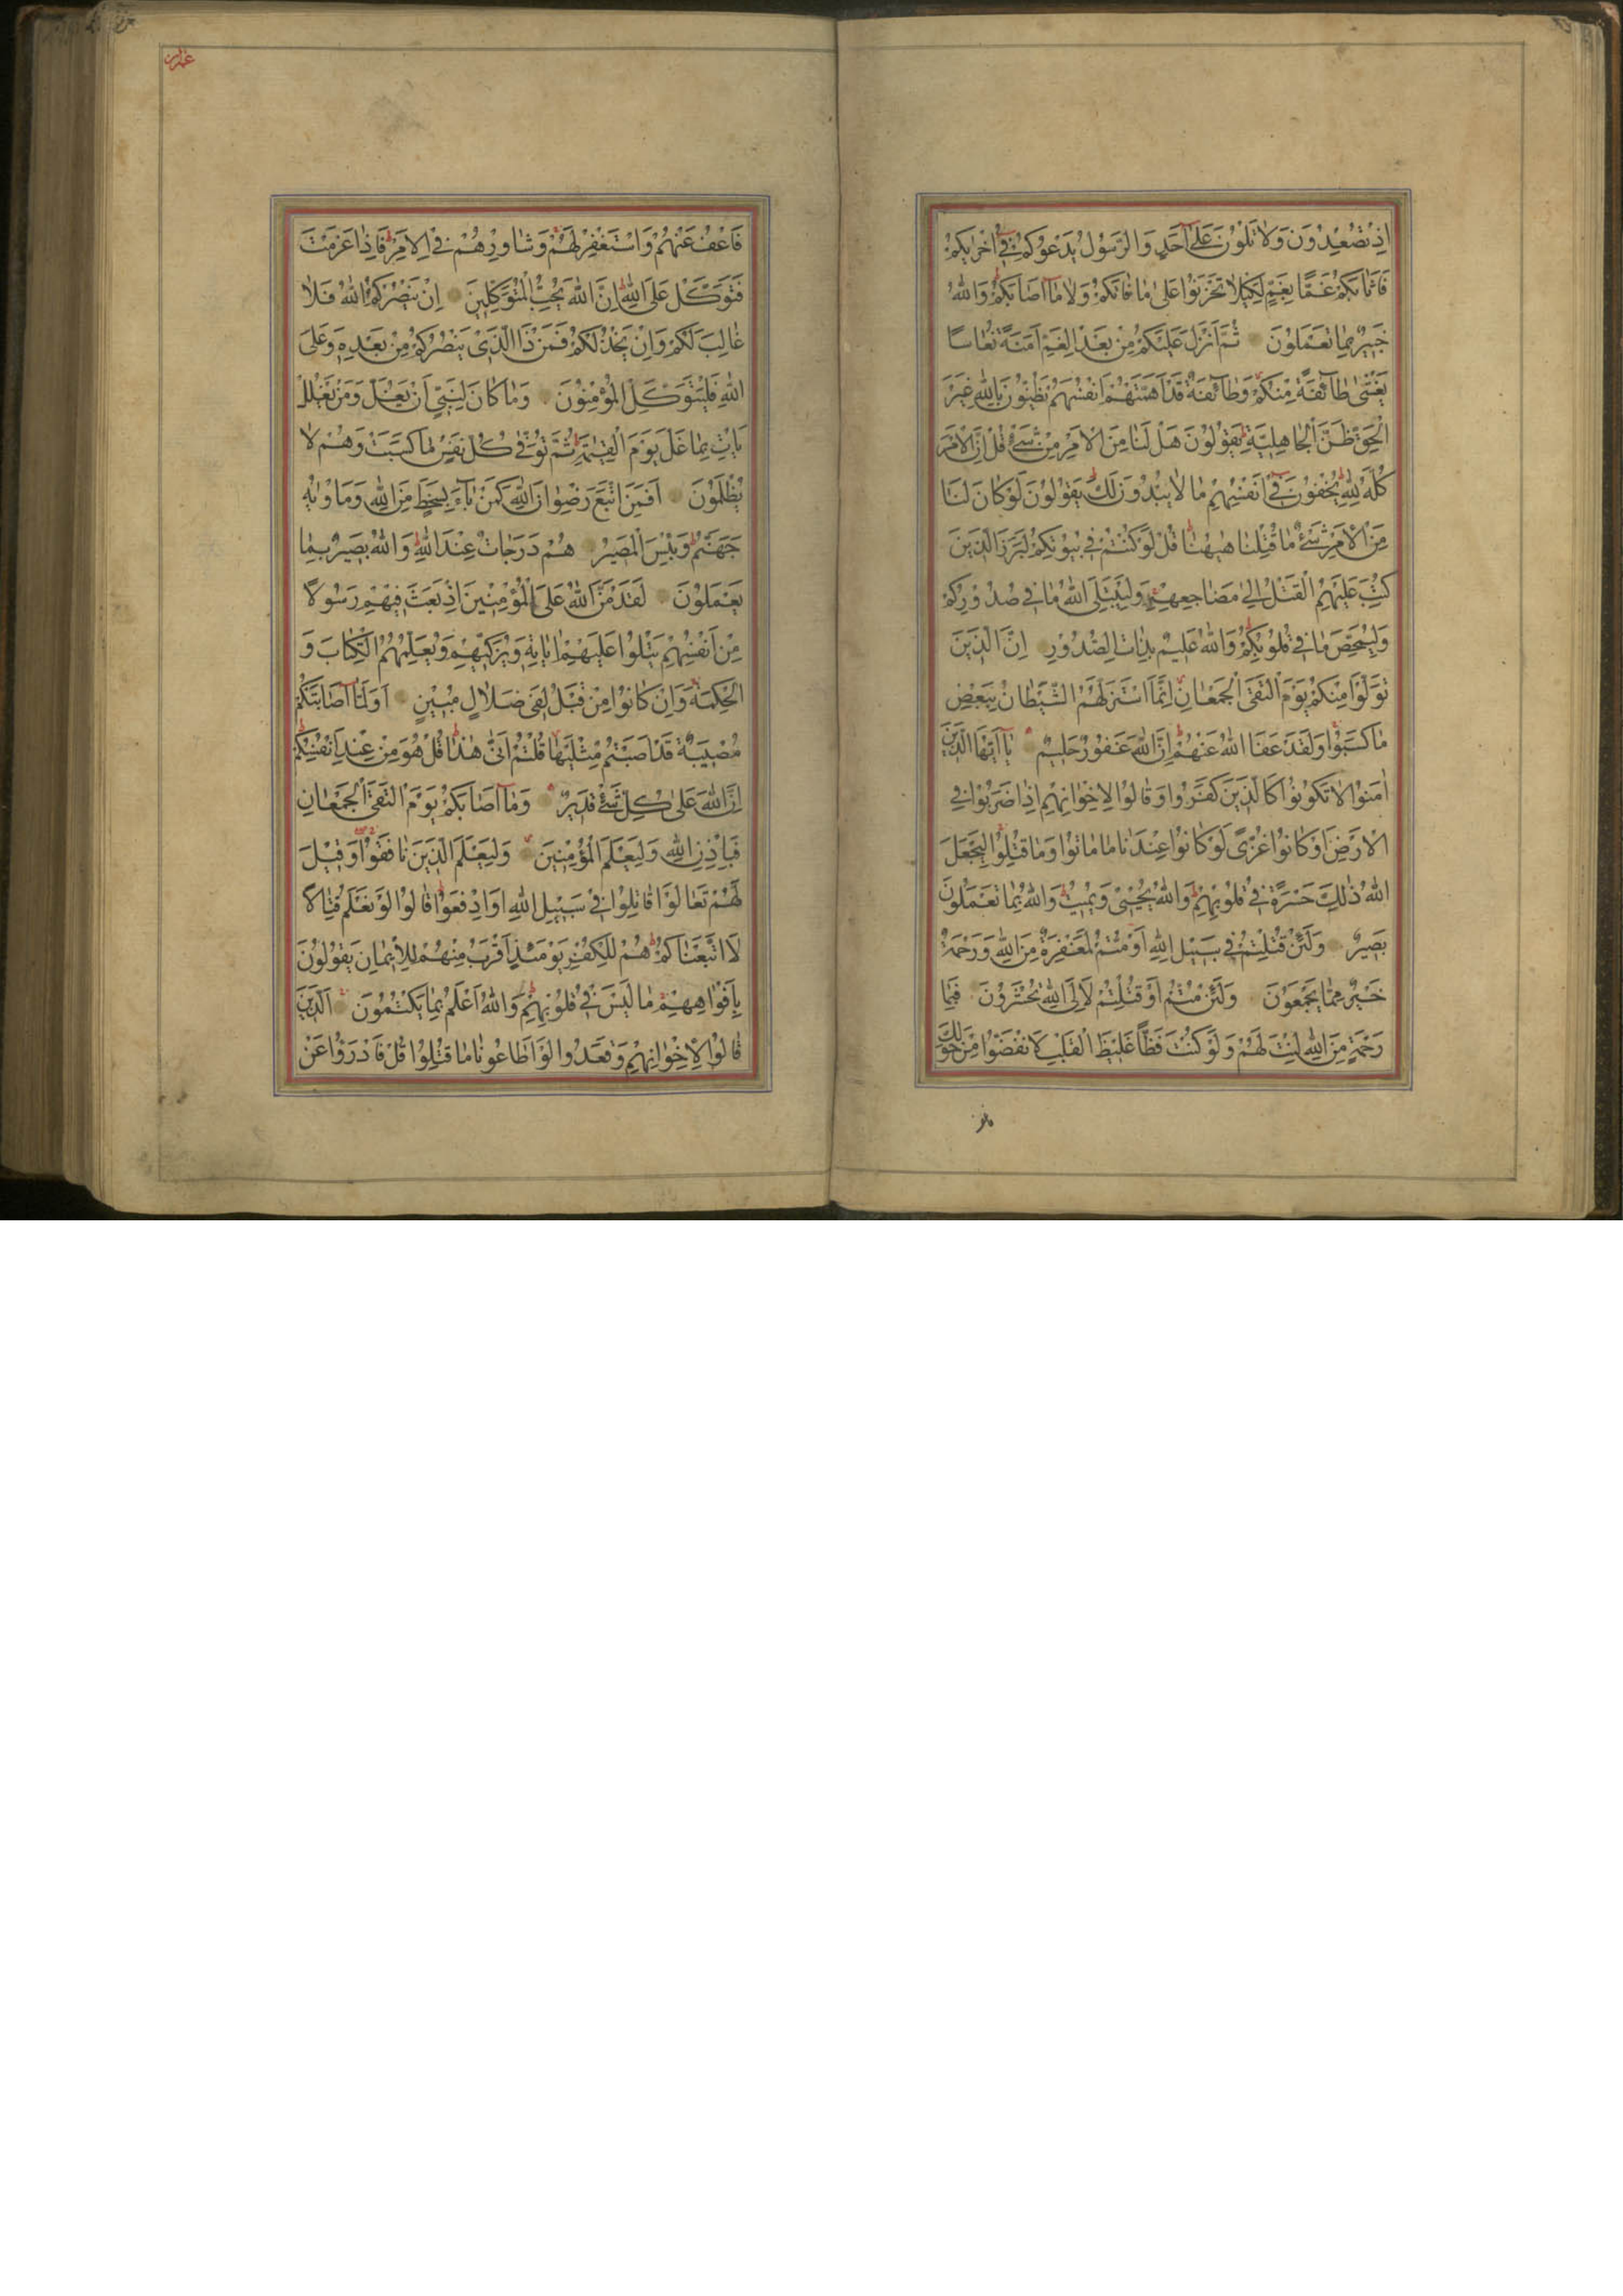 اِذْ تُصْعِدُونَ وَلَا تَلْوُنَ عَلٰى اَحَدٍ وَالرَّسُولُ يَدْعُوكُمْ فِى اُخْرٰيكُمْ
فَاَثَابَكُمْ غَمًّا بِغَمٍّ لِكَيْلَا تَحْزَنُوا عَلٰى مَا فَاتَكُمْ وَلَا مَا اَصَابَكُمْ وَاللّٰهُ
خَبِيرٌ بِمَا تَعْمَلُونَ ثُمَّ اَنْزَلَ عَلَيْكُمْ مِنْ بَعْدِ الْغَمِّ اَمَنَةً نُعَاسًا
يَغْشٰى طَآئِفَةً مِنْكُمْ وَطَآئِفَةٌ قَدْ اَهَمَّتْهُمْ اَنْفُسُهُمْ يَظُنُّونَ بِاللّٰهِ غَيْرَ
الْحَقِّ ظَنَّ الْجَاهِلِيَّةِ يَقُولُونَ هَلْ لَنَا مِنَ الْاَمْرِ مِنْ شَىْءٍ قُلْ اِنَّ الْاَمْرَ
كُلَّهُ لِلّٰهِ يُخْفُونَ فِى اَنْفُسِهِمْ مَا لَا يُبْدُونَ لَكَ يَقُولُونَ لَوْ كَانَ لَنَا
مِنَ الْاَمْرِ شَىْءٌ مَا قُتِلْنَا هٰهُنَا قُلْ لَوْ كُنْتُمْ فِى بُيُوتِكُمْ لَبَرَزَ الَّذِينَ
كُتِبَ عَلَيْهِمُ الْقَتْلُ اِلٰى مَضَاجِعِهِمْ وَلِيَبْتَلِىَ اللّٰهُ مَا فِى صُدُورِكُمْ
وَلِيُمَحِّصَ مَا فِى قُلُوبِكُمْ وَاللّٰهُ عَلِيمٌ بِذَاتِ الصُّدُورِ اِنَّ الَّذِينَ
تَوَلَّوْا مِنْكُمْ يَوْمَ الْتَقَى الْجَمْعَانِ اِنَّمَا اسْتَزَلَّهُمُ الشَّيْطَانُ بِبَعْضِ
مَا كَسَبُوا وَلَقَدْ عَفَا اللّٰهُ عَنْهُمْ اِنَّ اللّٰهَ غَفُورٌ حَلِيمٌ يَا اَيُّهَا الَّذِينَ
اٰمَنُوا لَا تَكُونُوا كَالَّذِينَ كَفَرُوا وَقَالُوا لِاِخْوَانِهِمْ اِذَا ضَرَبُوا فِى
الْاَرْضِ اَوْ كَانُوا غُزًّى لَوْ كَانُوا عِنْدَنَا مَا مَاتُوا وَمَا قُتِلُوا لِيَجْعَلَ
اللّٰهُ ذٰلِكَ حَسْرَةً فِى قُلُوبِهِمْ وَاللّٰهُ يُحْيِى وَيُمِيتُ وَاللّٰهُ بِمَا تَعْمَلُونَ
بَصِيرٌ وَلَئِنْ قُتِلْتُمْ فِى سَبِيلِ اللّٰهِ اَوْ مُتُّمْ لَمَغْفِرَةٌ مِنَ اللّٰهِ وَرَحْمَةٌ
خَيْرٌ مِمَّا يَجْمَعُونَ وَلَئِنْ مُتُّمْ اَوْ قُتِلْتُمْ لَاِلَى اللّٰهِ تُحْشَرُونَ فَبِمَا
رَحْمَةٍ مِنَ اللّٰهِ لِنْتَ لَهُمْ وَلَوْ كُنْتَ فَظًّا غَلِيظَ الْقَلْبِ لَانْفَضُّوا مِنْ حَوْلِكَ
فَاعْفُ عَنْهُمْ وَاسْتَغْفِرْ لَهُمْ وَشَاوِرْهُمْ فِى الْاَمْرِ فَاِذَا عَزَمْتَ
فَتَوَكَّلْ عَلَى اللّٰهِ اِنَّ اللّٰهَ يُحِبُّ الْمُتَوَكِّلِينَ اِنْ يَنْصُرْكُمُ اللّٰهُ فَلَا
غَالِبَ لَكُمْ وَاِنْ يَخْذُلْكُمْ فَمَنْ ذَا الَّذِى يَنْصُرُكُمْ مِنْ بَعْدِهِ وَعَلَى
اللّٰهِ فَلْيَتَوَكَّلِ الْمُؤْمِنُونَ وَمَا كَانَ لِنَبِىٍّ اَنْ يَغُلَّ وَمَنْ يَغْلُلْ
يَأْتِ بِمَا غَلَّ يَوْمَ الْقِيٰمَةِ ثُمَّ تُوَفّٰى كُلُّ نَفْسٍ مَا كَسَبَتْ وَهُمْ لَا
يُظْلَمُونَ اَفَمَنِ اتَّبَعَ رِضْوَانَ اللّٰهِ كَمَنْ بَآءَ بِسَخَطٍ مِنَ اللّٰهِ وَمَأْوٰيهُ
جَهَنَّمُ وَبِئْسَ الْمَصِيرُ هُمْ دَرَجَاتٌ عِنْدَ اللّٰهِ وَاللّٰهُ بَصِيرٌ بِمَا
يَعْمَلُونَ لَقَدْ مَنَّ اللّٰهُ عَلَى الْمُؤْمِنِينَ اِذْ بَعَثَ فِيهِمْ رَسُولًا
مِنْ اَنْفُسِهِمْ يَتْلُوا عَلَيْهِمْ اٰيَاتِهِ وَيُزَكِّيهِمْ وَيُعَلِّمُهُمُ الْكِتَابَ وَ
الْحِكْمَةَ وَاِنْ كَانُوا مِنْ قَبْلُ لَفِى ضَلَالٍ مُبِينٍ اَوَلَمَّا اَصَابَتْكُمْ
مُصِيبَةٌ قَدْ اَصَبْتُمْ مِثْلَيْهَا قُلْتُمْ اَنّٰى هٰذَا قُلْ هُوَ مِنْ عِنْدِ اَنْفُسِكُمْ
اِنَّ اللّٰهَ عَلٰى كُلِّ شَىْءٍ قَدِيرٌ وَمَا اَصَابَكُمْ يَوْمَ الْتَقَى الْجَمْعَانِ
فَبِاِذْنِ اللّٰهِ وَلِيَعْلَمَ الْمُؤْمِنِينَ وَلِيَعْلَمَ الَّذِينَ نَافَقُوا وَقِيلَ
لَهُمْ تَعَالَوْا قَاتِلُوا فِى سَبِيلِ اللّٰهِ اَوِ ادْفَعُوا قَالُوا لَوْ نَعْلَمُ قِتَالًا
لَاتَّبَعْنَاكُمْ هُمْ لِلْكُفْرِ يَوْمَئِذٍ اَقْرَبُ مِنْهُمْ لِلْاِيمَانِ يَقُولُونَ
بِاَفْوَاهِهِمْ مَا لَيْسَ فِى قُلُوبِهِمْ وَاللّٰهُ اَعْلَمُ بِمَا يَكْتُمُونَ اَلَّذِينَ
قَالُوا لِاِخْوَانِهِمْ وَقَعَدُوا لَوْ اَطَاعُونَا مَا قُتِلُوا قُلْ فَادْرَؤُا عَنْ